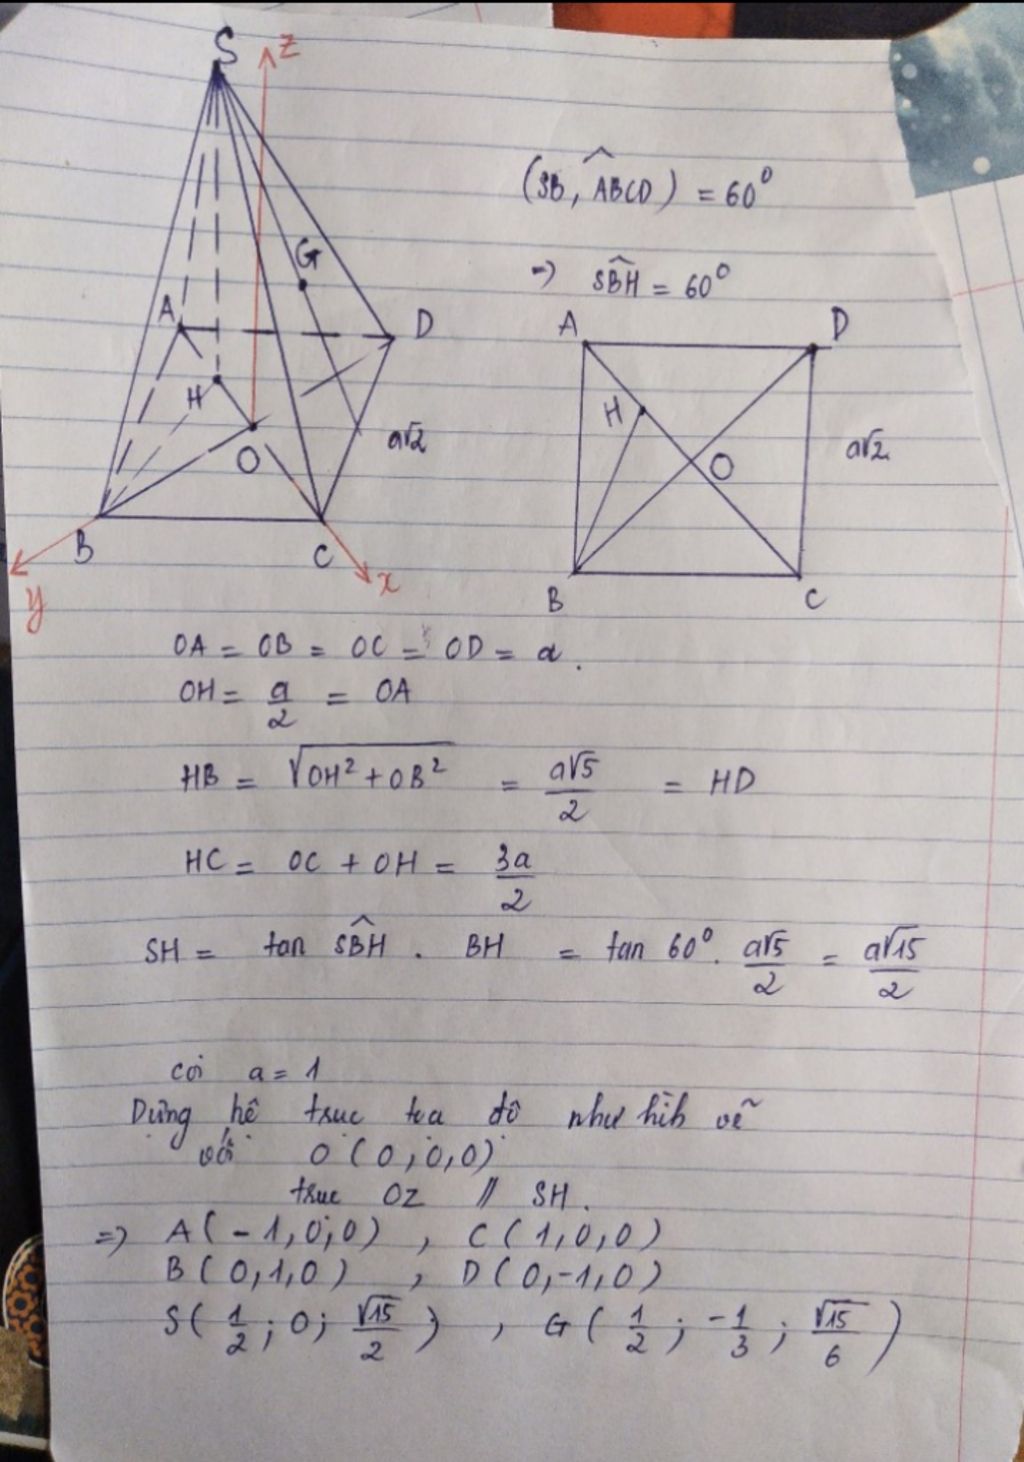 S
z
(SB, ABCD) = 60⁰
G
=) SB̂H = 60⁰
A
D
A
D
H
H
O
a√2
O
a√2
B
C
x
y
B
C
OA = OB = OC = OD = a.
OH = a/2 = OA
HB = √(OH² + OB²) = a√5/2 = HD
HC = OC + OH = 3a/2
SH = tan SB̂H . BH = tan 60⁰. a√5/2 = a√15/2
coi a = 1
Dựng hệ trục tọa độ như hìh vẽ
với O (0, 0, 0)
trục OZ // SH.
=) A( - 1, 0, 0) , C ( 1, 0, 0)
B ( 0, 1, 0 ) , D ( 0, -1, 0 )
S( 1/2 ; 0; √15/2 ) , G ( 1/2 ; -1/3 ; √15/6 )